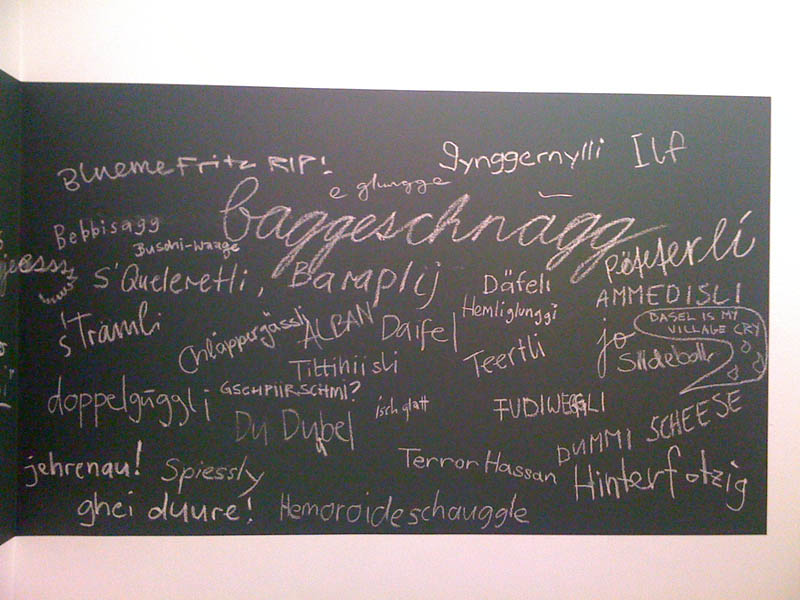 Blueme Fritz RIP!
gynggernylli
Ilf
e glungge
baggeschnägg
Bebbisagg
Buschi-waage
Pëfferlí
s'Queleretli, Baraplij
Däfeli
AMMEDISLI
Hemliglunggi
BASEL IS MY
VILLAGE CRY
's Trämli
Chläppergässli
ALBAN
Daifel
jo
Teertli
Tittihiisli
doppelgüggli
GSCHPIIRSCHMI?
isch glatt
FUDIWEGGLI
Du Dubel
DUMMI SCHEESE
jehrenau!
Spiessly
Terror Hassan
Hinterfotzig
ghei duure!
Hemoroideschauggle